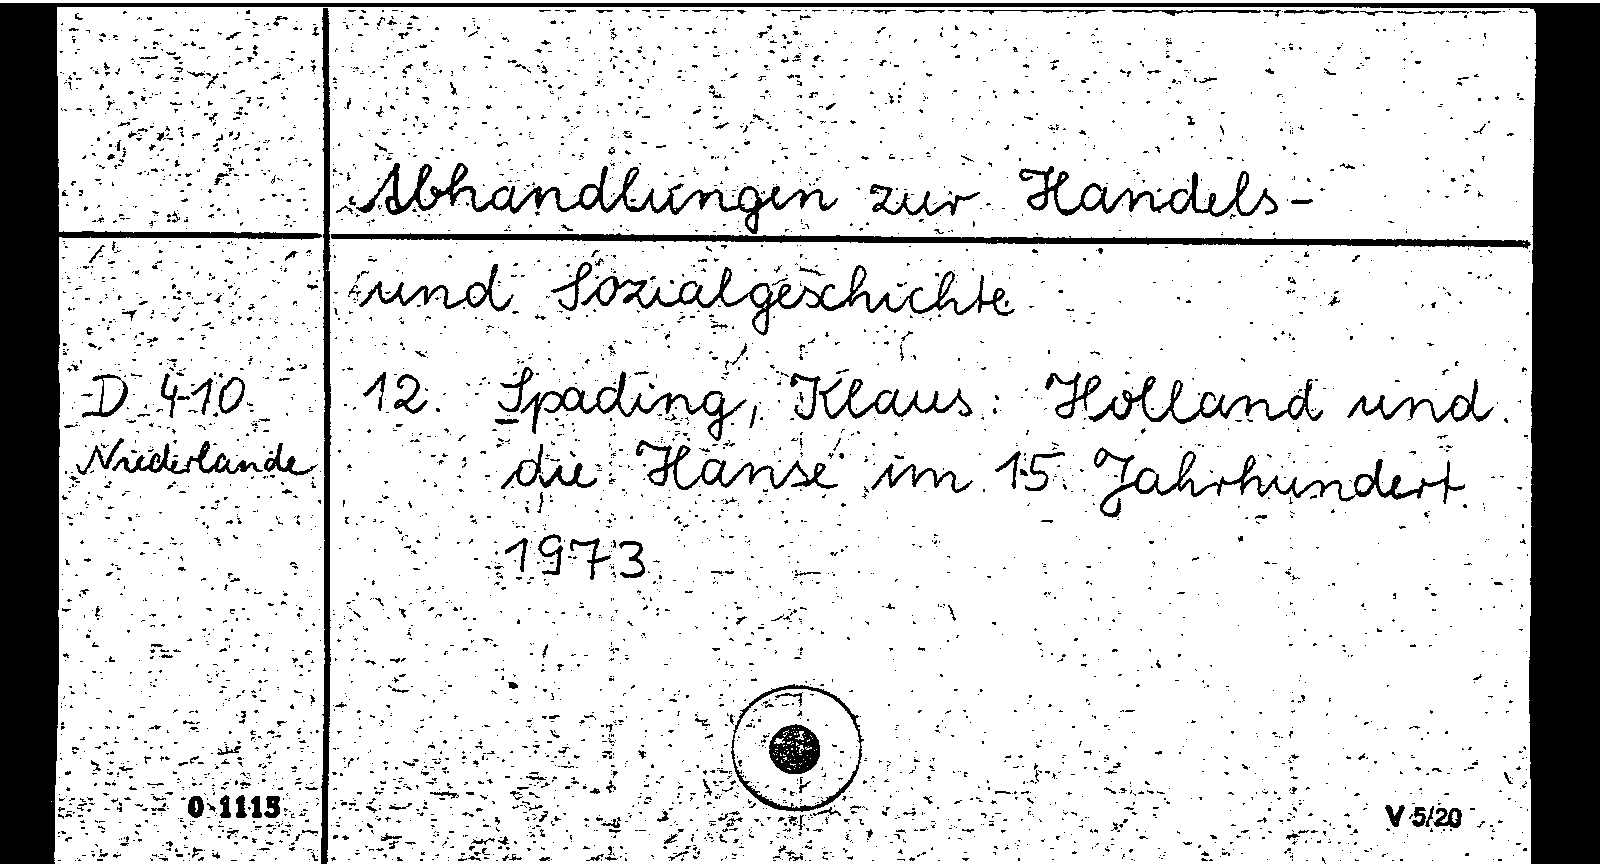 Abhandlungen zur Handels-
und Sozialgeschichte
D 410
Niederlande
12. Spading, Klaus: Holland und
die Hanse im 15. Jahrhundert
1973
0 1115
V 5/20